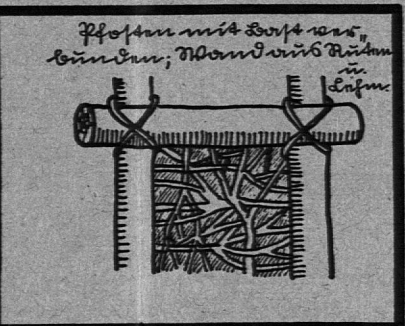 Pfosten mit Bast ver-
bunden; Wand aus Ruten
u.
Lehm.